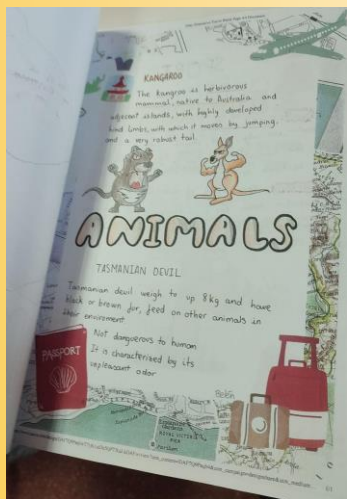 KANGAROO
The Kangroo is herbivorous
mammal, native to Australia and
adjacent islands, with highly developed
hind limbs, with which it moves by jumping,
and a very robust tail.
ANIMALS
TASMANIAN DEVIL
Tasmanian devil weigh to up 8kg and have
black or brown fur, feed on other animals in
their enviroment
Not dangerous to human
It is characterised by its
unpleasant odor
PASSPORT
Belén